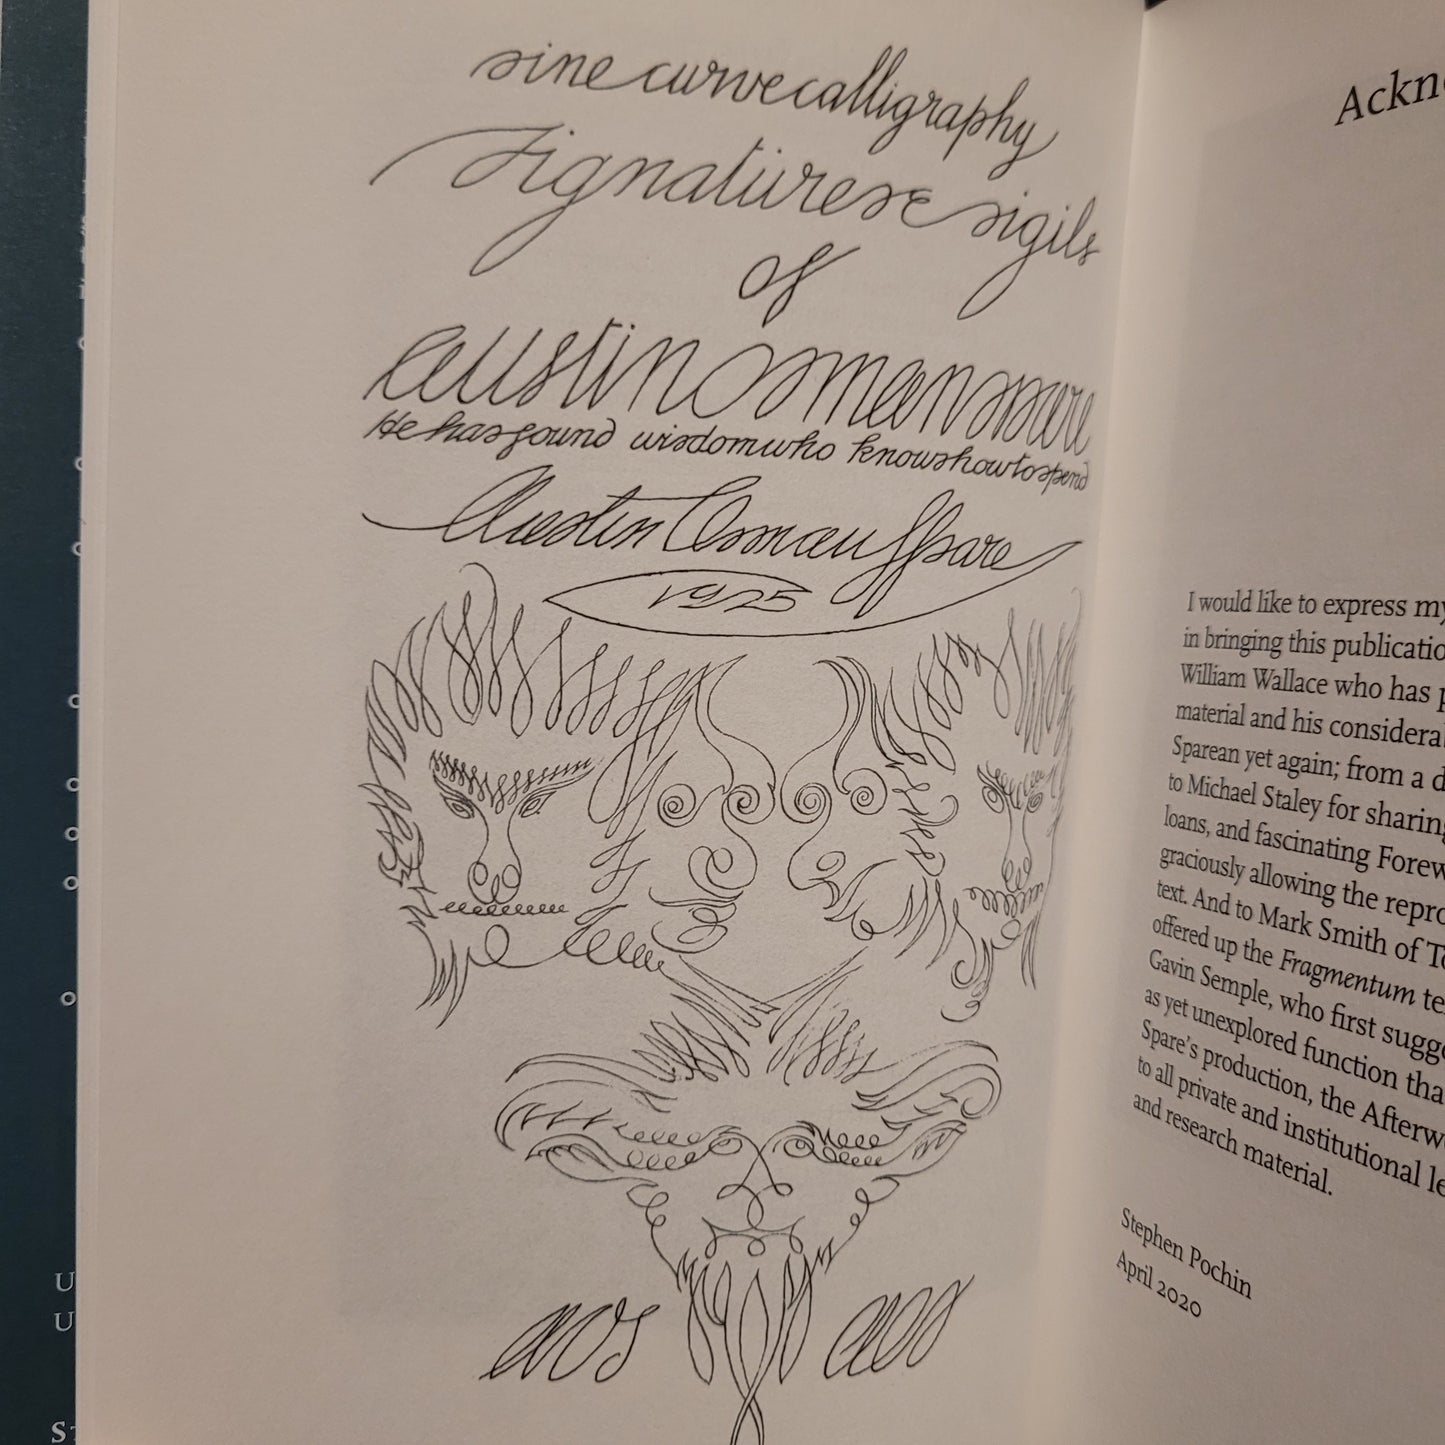 sine curve calligraphy
signatures & sigils
of
austin osman spare
He has found wisdom who knows how to spend
Austin Osman Spare
1925
aos aos
Ackn
I would like to express my
in bringing this publicatio
William Wallace who has p
material and his considera
Sparean yet again; from a d
to Michael Staley for sharing
loans, and fascinating Forew
graciously allowing the repro
text. And to Mark Smith of To
offered up the Fragmentum te
Gavin Semple, who first sugge
as yet unexplored function tha
Spare's production, the Afterw
to all private and institutional le
and research material.
Stephen Pochin
April 2020
U
U
ST